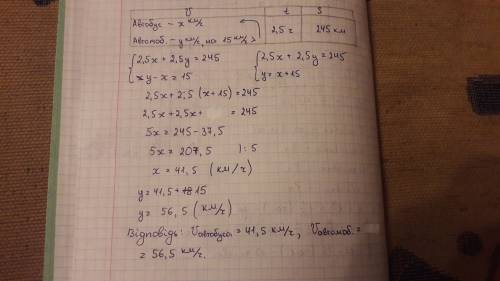 V t S
Автобус – x км/г 2,5 г 245 км
Автомоб. – y км/г, на 15 км/г >
{2,5x + 2,5y = 245 {2,5x + 2,5y = 245
y - x = 15 y = x + 15
2,5x + 2,5 (x + 15) = 245
2,5x + 2,5x + = 245
5x = 245 - 37,5
5x = 207,5 | : 5
x = 41,5 (км/г)
y = 41,5 + 15
y = 56,5 (км/г)
Відповідь: Vавтобуса = 41,5 км/г, Vавтомоб. =
= 56,5 км/г.